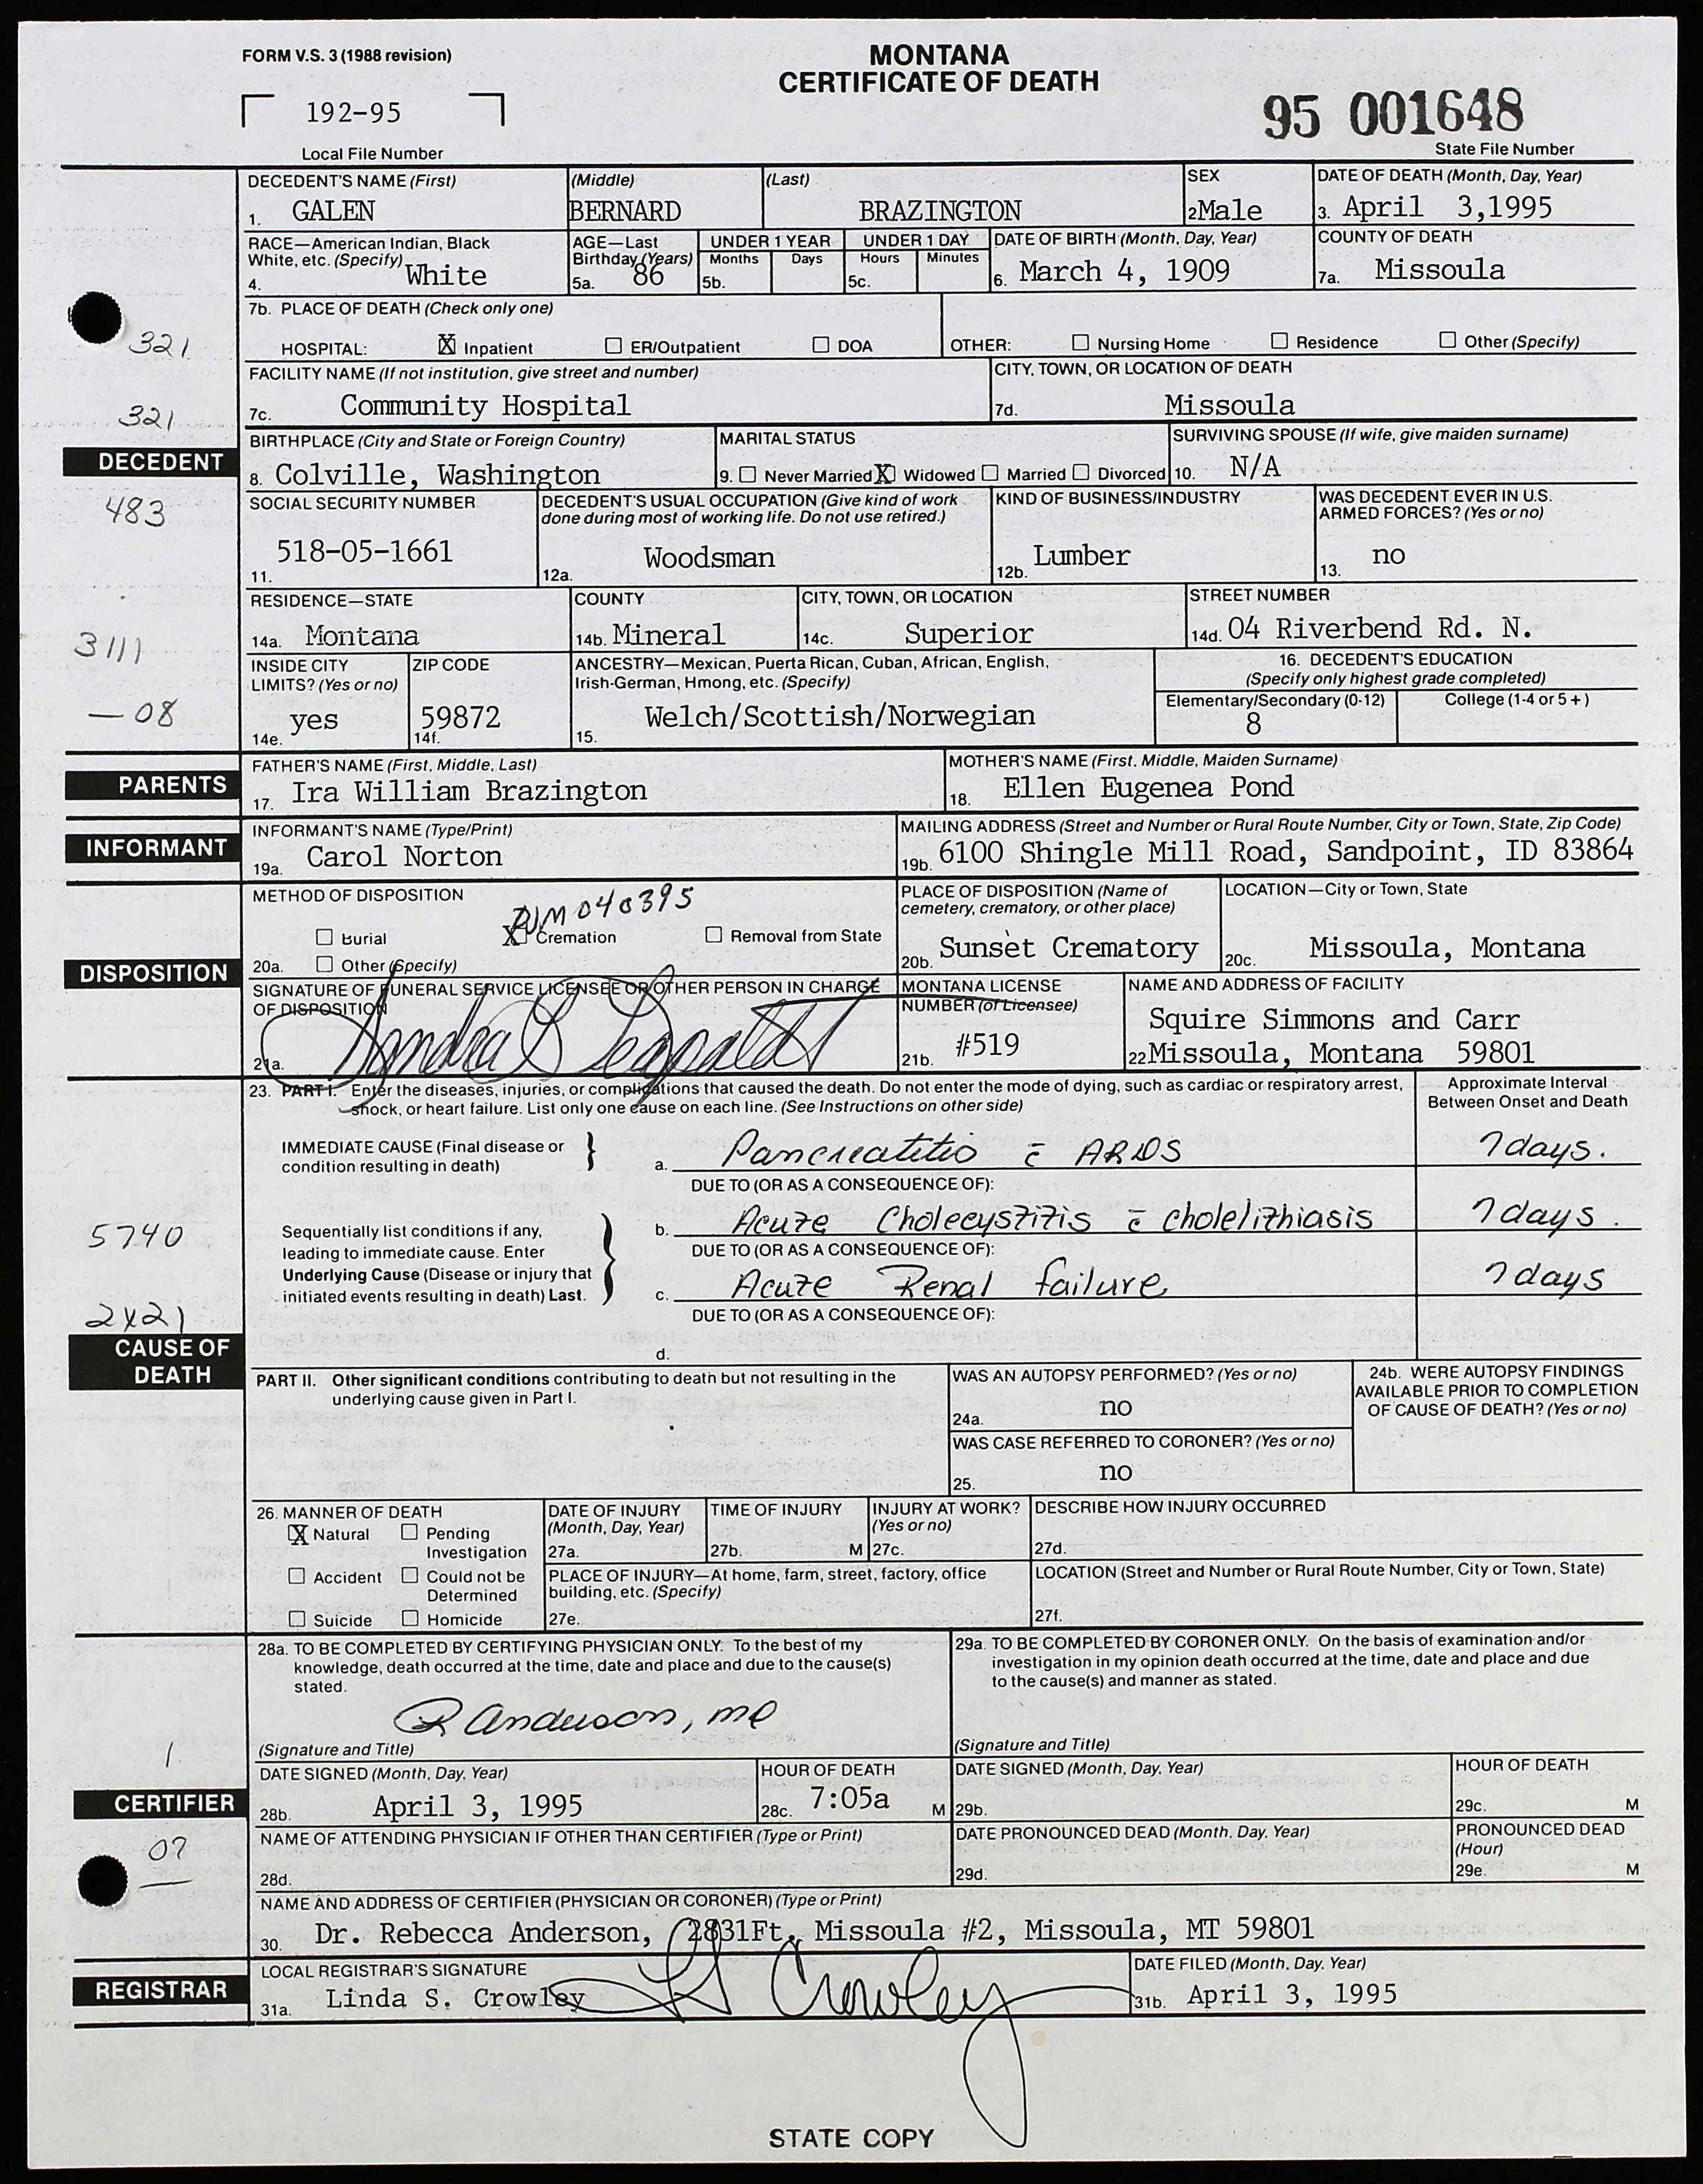 FORM V.S. 3 (1988 revision)
MONTANA
CERTIFICATE OF DEATH
192-95
Local File Number
95 001648
State File Number
DECEDENT'S NAME (First) (Middle) (Last) SEX DATE OF DEATH (Month, Day, Year)
1. GALEN BERNARD BRAZINGTON 2 Male 3. April 3,1995
RACE—American Indian, Black White, etc. (Specify) AGE—Last Birthday (Years) UNDER 1 YEAR Months Days UNDER 1 DAY Hours Minutes DATE OF BIRTH (Month, Day, Year) COUNTY OF DEATH
4. White 5a. 86 5b. 5c. 6. March 4, 1909 7a. Missoula
7b. PLACE OF DEATH (Check only one)
321
HOSPITAL: X Inpatient ☐ ER/Outpatient ☐ DOA OTHER: ☐ Nursing Home ☐ Residence ☐ Other (Specify)
FACILITY NAME (If not institution, give street and number) CITY, TOWN, OR LOCATION OF DEATH
321
7c. Community Hospital 7d. Missoula
BIRTHPLACE (City and State or Foreign Country) MARITAL STATUS SURVIVING SPOUSE (If wife, give maiden surname)
DECEDENT
8. Colville, Washington 9. ☐ Never Married X Widowed ☐ Married ☐ Divorced 10. N/A
483
SOCIAL SECURITY NUMBER DECEDENT'S USUAL OCCUPATION (Give kind of work done during most of working life. Do not use retired.) KIND OF BUSINESS/INDUSTRY WAS DECEDENT EVER IN U.S. ARMED FORCES? (Yes or no)
11. 518-05-1661 12a. Woodsman 12b. Lumber 13. no
RESIDENCE—STATE COUNTY CITY, TOWN, OR LOCATION STREET NUMBER
3111
14a. Montana 14b. Mineral 14c. Superior 14d. 04 Riverbend Rd. N.
INSIDE CITY LIMITS? (Yes or no) ZIP CODE ANCESTRY—Mexican, Puerta Rican, Cuban, African, English, Irish-German, Hmong, etc. (Specify) 16. DECEDENT'S EDUCATION (Specify only highest grade completed)
Elementary/Secondary (0-12) College (1-4 or 5+)
— 08
14e. yes 14f. 59872 15. Welch/Scottish/Norwegian 8
PARENTS
FATHER'S NAME (First, Middle, Last) MOTHER'S NAME (First, Middle, Maiden Surname)
17. Ira William Brazington 18. Ellen Eugenea Pond
INFORMANT
INFORMANT'S NAME (Type/Print) MAILING ADDRESS (Street and Number or Rural Route Number, City or Town, State, Zip Code)
19a. Carol Norton 19b. 6100 Shingle Mill Road, Sandpoint, ID 83864
METHOD OF DISPOSITION PLACE OF DISPOSITION (Name of cemetery, crematory, or other place) LOCATION—City or Town, State
040395
☐ Burial X Cremation ☐ Removal from State
20a. ☐ Other (Specify) 20b. Sunset Crematory 20c. Missoula, Montana
DISPOSITION
SIGNATURE OF FUNERAL SERVICE LICENSEE OR OTHER PERSON IN CHARGE OF DISPOSITION MONTANA LICENSE NUMBER (of Licensee) NAME AND ADDRESS OF FACILITY
21a. 21b. #519 22 Squire Simmons and Carr
Missoula, Montana 59801
23. PART I. Enter the diseases, injuries, or complications that caused the death. Do not enter the mode of dying, such as cardiac or respiratory arrest, shock, or heart failure. List only one cause on each line. (See Instructions on other side)
Approximate Interval Between Onset and Death
IMMEDIATE CAUSE (Final disease or condition resulting in death) a. Pancreatitis c̄ ARDS 7 days.
DUE TO (OR AS A CONSEQUENCE OF):
5740
Sequentially list conditions if any, leading to immediate cause. Enter Underlying Cause (Disease or injury that initiated events resulting in death) Last.
b. Acute Cholecystitis c̄ cholelithiasis 7 days.
DUE TO (OR AS A CONSEQUENCE OF):
c. Acute Renal failure 7 days
DUE TO (OR AS A CONSEQUENCE OF):
d.
2X21
CAUSE OF DEATH
PART II. Other significant conditions contributing to death but not resulting in the underlying cause given in Part I.
WAS AN AUTOPSY PERFORMED? (Yes or no)
24a. no
24b. WERE AUTOPSY FINDINGS AVAILABLE PRIOR TO COMPLETION OF CAUSE OF DEATH? (Yes or no)
WAS CASE REFERRED TO CORONER? (Yes or no)
25. no
26. MANNER OF DEATH
X Natural ☐ Pending Investigation
☐ Accident ☐ Could not be Determined
☐ Suicide ☐ Homicide
DATE OF INJURY (Month, Day, Year) TIME OF INJURY INJURY AT WORK? (Yes or no) DESCRIBE HOW INJURY OCCURRED
27a. 27b. M 27c. 27d.
PLACE OF INJURY—At home, farm, street, factory, office building, etc. (Specify) LOCATION (Street and Number or Rural Route Number, City or Town, State)
27e. 27f.
28a. TO BE COMPLETED BY CERTIFYING PHYSICIAN ONLY. To the best of my knowledge, death occurred at the time, date and place and due to the cause(s) stated.
R Anderson, MD
(Signature and Title)
29a. TO BE COMPLETED BY CORONER ONLY. On the basis of examination and/or investigation in my opinion death occurred at the time, date and place and due to the cause(s) and manner as stated.
(Signature and Title)
1
CERTIFIER
DATE SIGNED (Month, Day, Year) HOUR OF DEATH DATE SIGNED (Month, Day, Year) HOUR OF DEATH
28b. April 3, 1995 28c. 7:05a M 29b. 29c. M
07
NAME OF ATTENDING PHYSICIAN IF OTHER THAN CERTIFIER (Type or Print) DATE PRONOUNCED DEAD (Month, Day, Year) PRONOUNCED DEAD (Hour)
28d. 29d. 29e. M
NAME AND ADDRESS OF CERTIFIER (PHYSICIAN OR CORONER) (Type or Print)
30. Dr. Rebecca Anderson, 2831Ft. Missoula #2, Missoula, MT 59801
REGISTRAR
LOCAL REGISTRAR'S SIGNATURE DATE FILED (Month, Day, Year)
31a. Linda S. Crowley LS Crowley 31b. April 3, 1995
STATE COPY